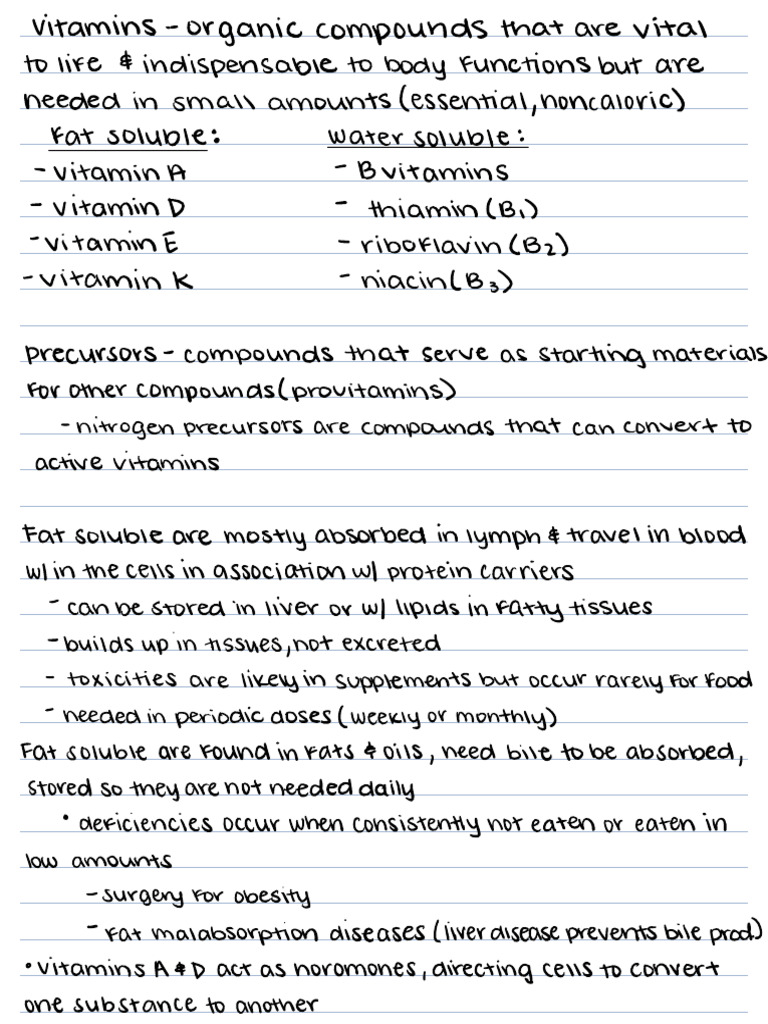 vitamins - organic compounds that are vital
to life & indispensable to body functions but are
needed in small amounts (essential, noncaloric)
fat soluble: water soluble:
- vitamin A - B vitamins
- vitamin D - thiamin (B₁)
- vitamin E - riboflavin (B₂)
- vitamin K - niacin (B₃)
precursors - compounds that serve as starting materials
for other compounds (provitamins)
- nitrogen precursors are compounds that can convert to
active vitamins
Fat soluble are mostly absorbed in lymph & travel in blood
w/in the cells in association w/ protein carriers
- can be stored in liver or w/ lipids in fatty tissues
- builds up in tissues, not excreted
- toxicities are likely in supplements but occur rarely for food
- needed in periodic doses (weekly or monthly)
Fat soluble are found in fats & oils, need bile to be absorbed,
stored so they are not needed daily
• deficiencies occur when consistently not eaten or eaten in
low amounts
- surgery for obesity
- fat malabsorption diseases (liver disease prevents bile prod)
• vitamins A & D act as horomones, directing cells to convert
one substance to another